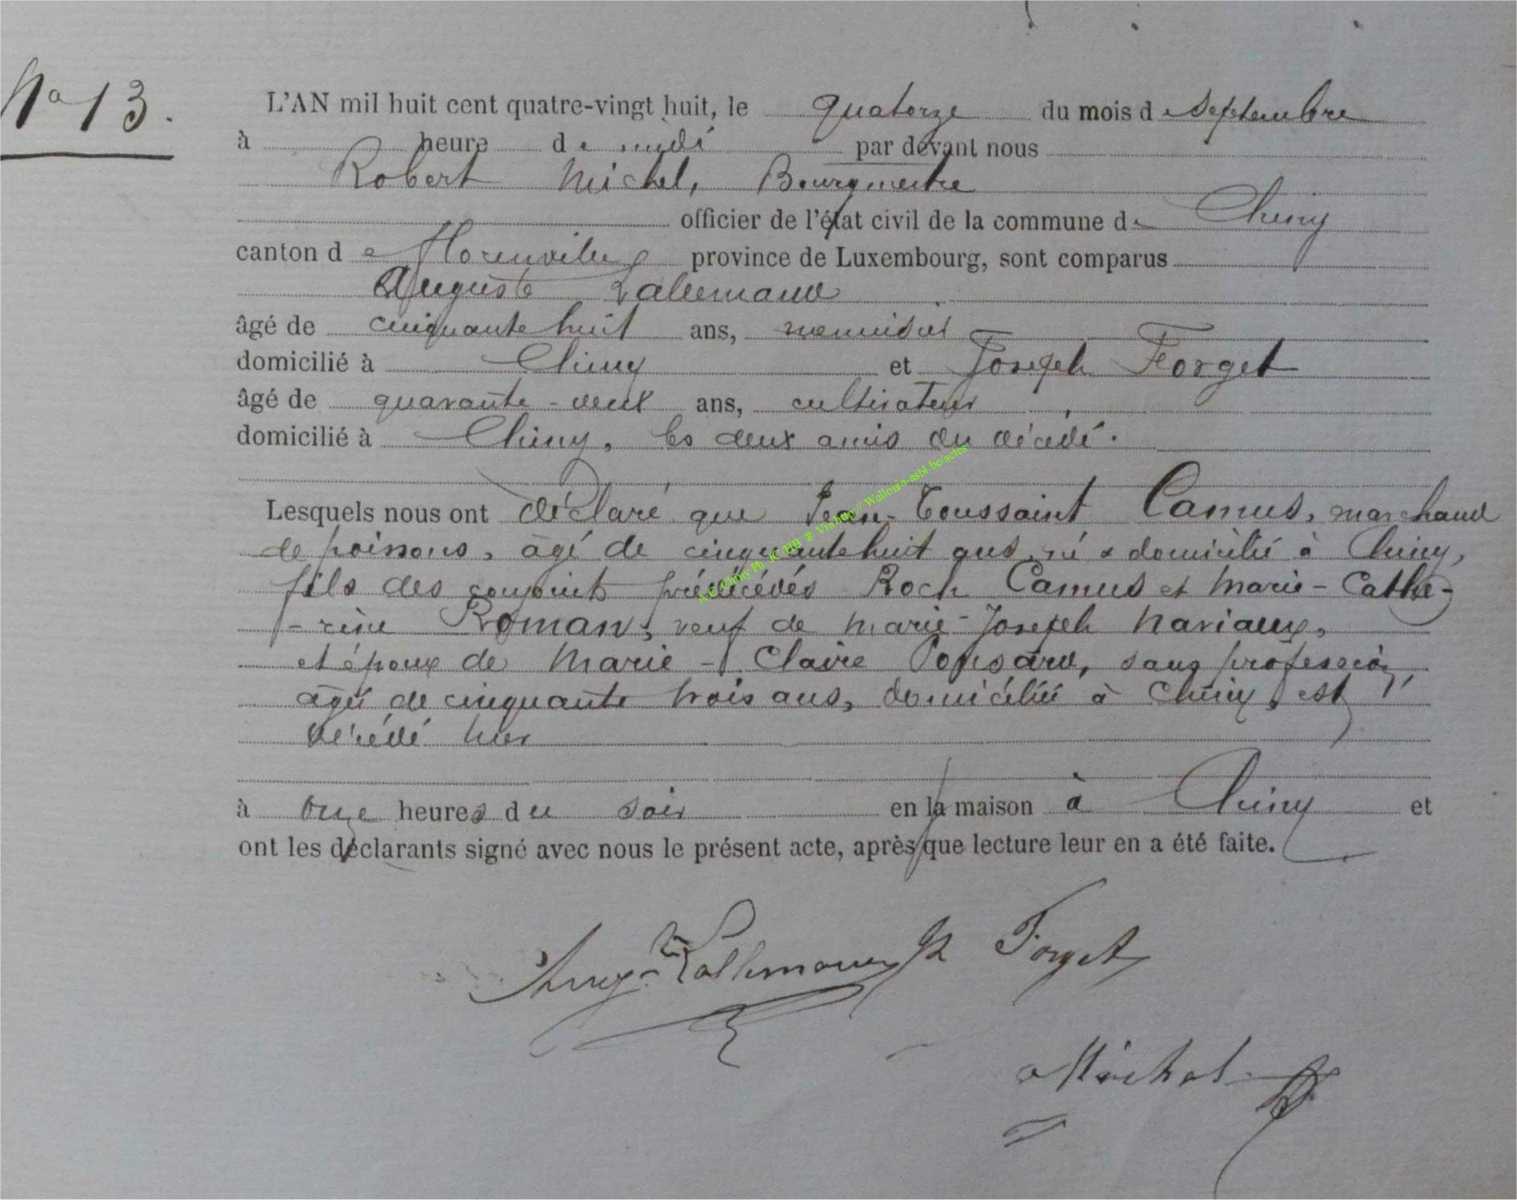 No 13.
L'AN mil huit cent quatre-vingt huit, le quatorze du mois de septembre
à heure de midi par devant nous
Robert Michel, Bourgmestre
officier de l'état civil de la commune de Chiny
canton de Florenville province de Luxembourg, sont comparus
Auguste Lallemand
âgé de cinquante huit ans, menuisier
domicilié à Chiny et Joseph Forget
âgé de quarante-deux ans, cultivateur,
domicilié à Chiny, les deux amis du décédé.
Lesquels nous ont déclaré que Jean-Toussaint Camus, marchand
de poissons, âgé de cinquante huit ans, né & domicilié à Chiny,
fils des conjoints prédécédés Roch Camus et Marie-Cathe-
-rine Roman, veuf de Marie-Joseph Nariaux,
et époux de Marie-Claire Ponsard, sans profession,
âgée de cinquante trois ans, domiciliée à Chiny, est
décédé hier
à onze heures du soir en la maison à Chiny et
ont les déclarants signé avec nous le présent acte, après que lecture leur en a été faite.
Aug. Lallemand J Forget
Michel